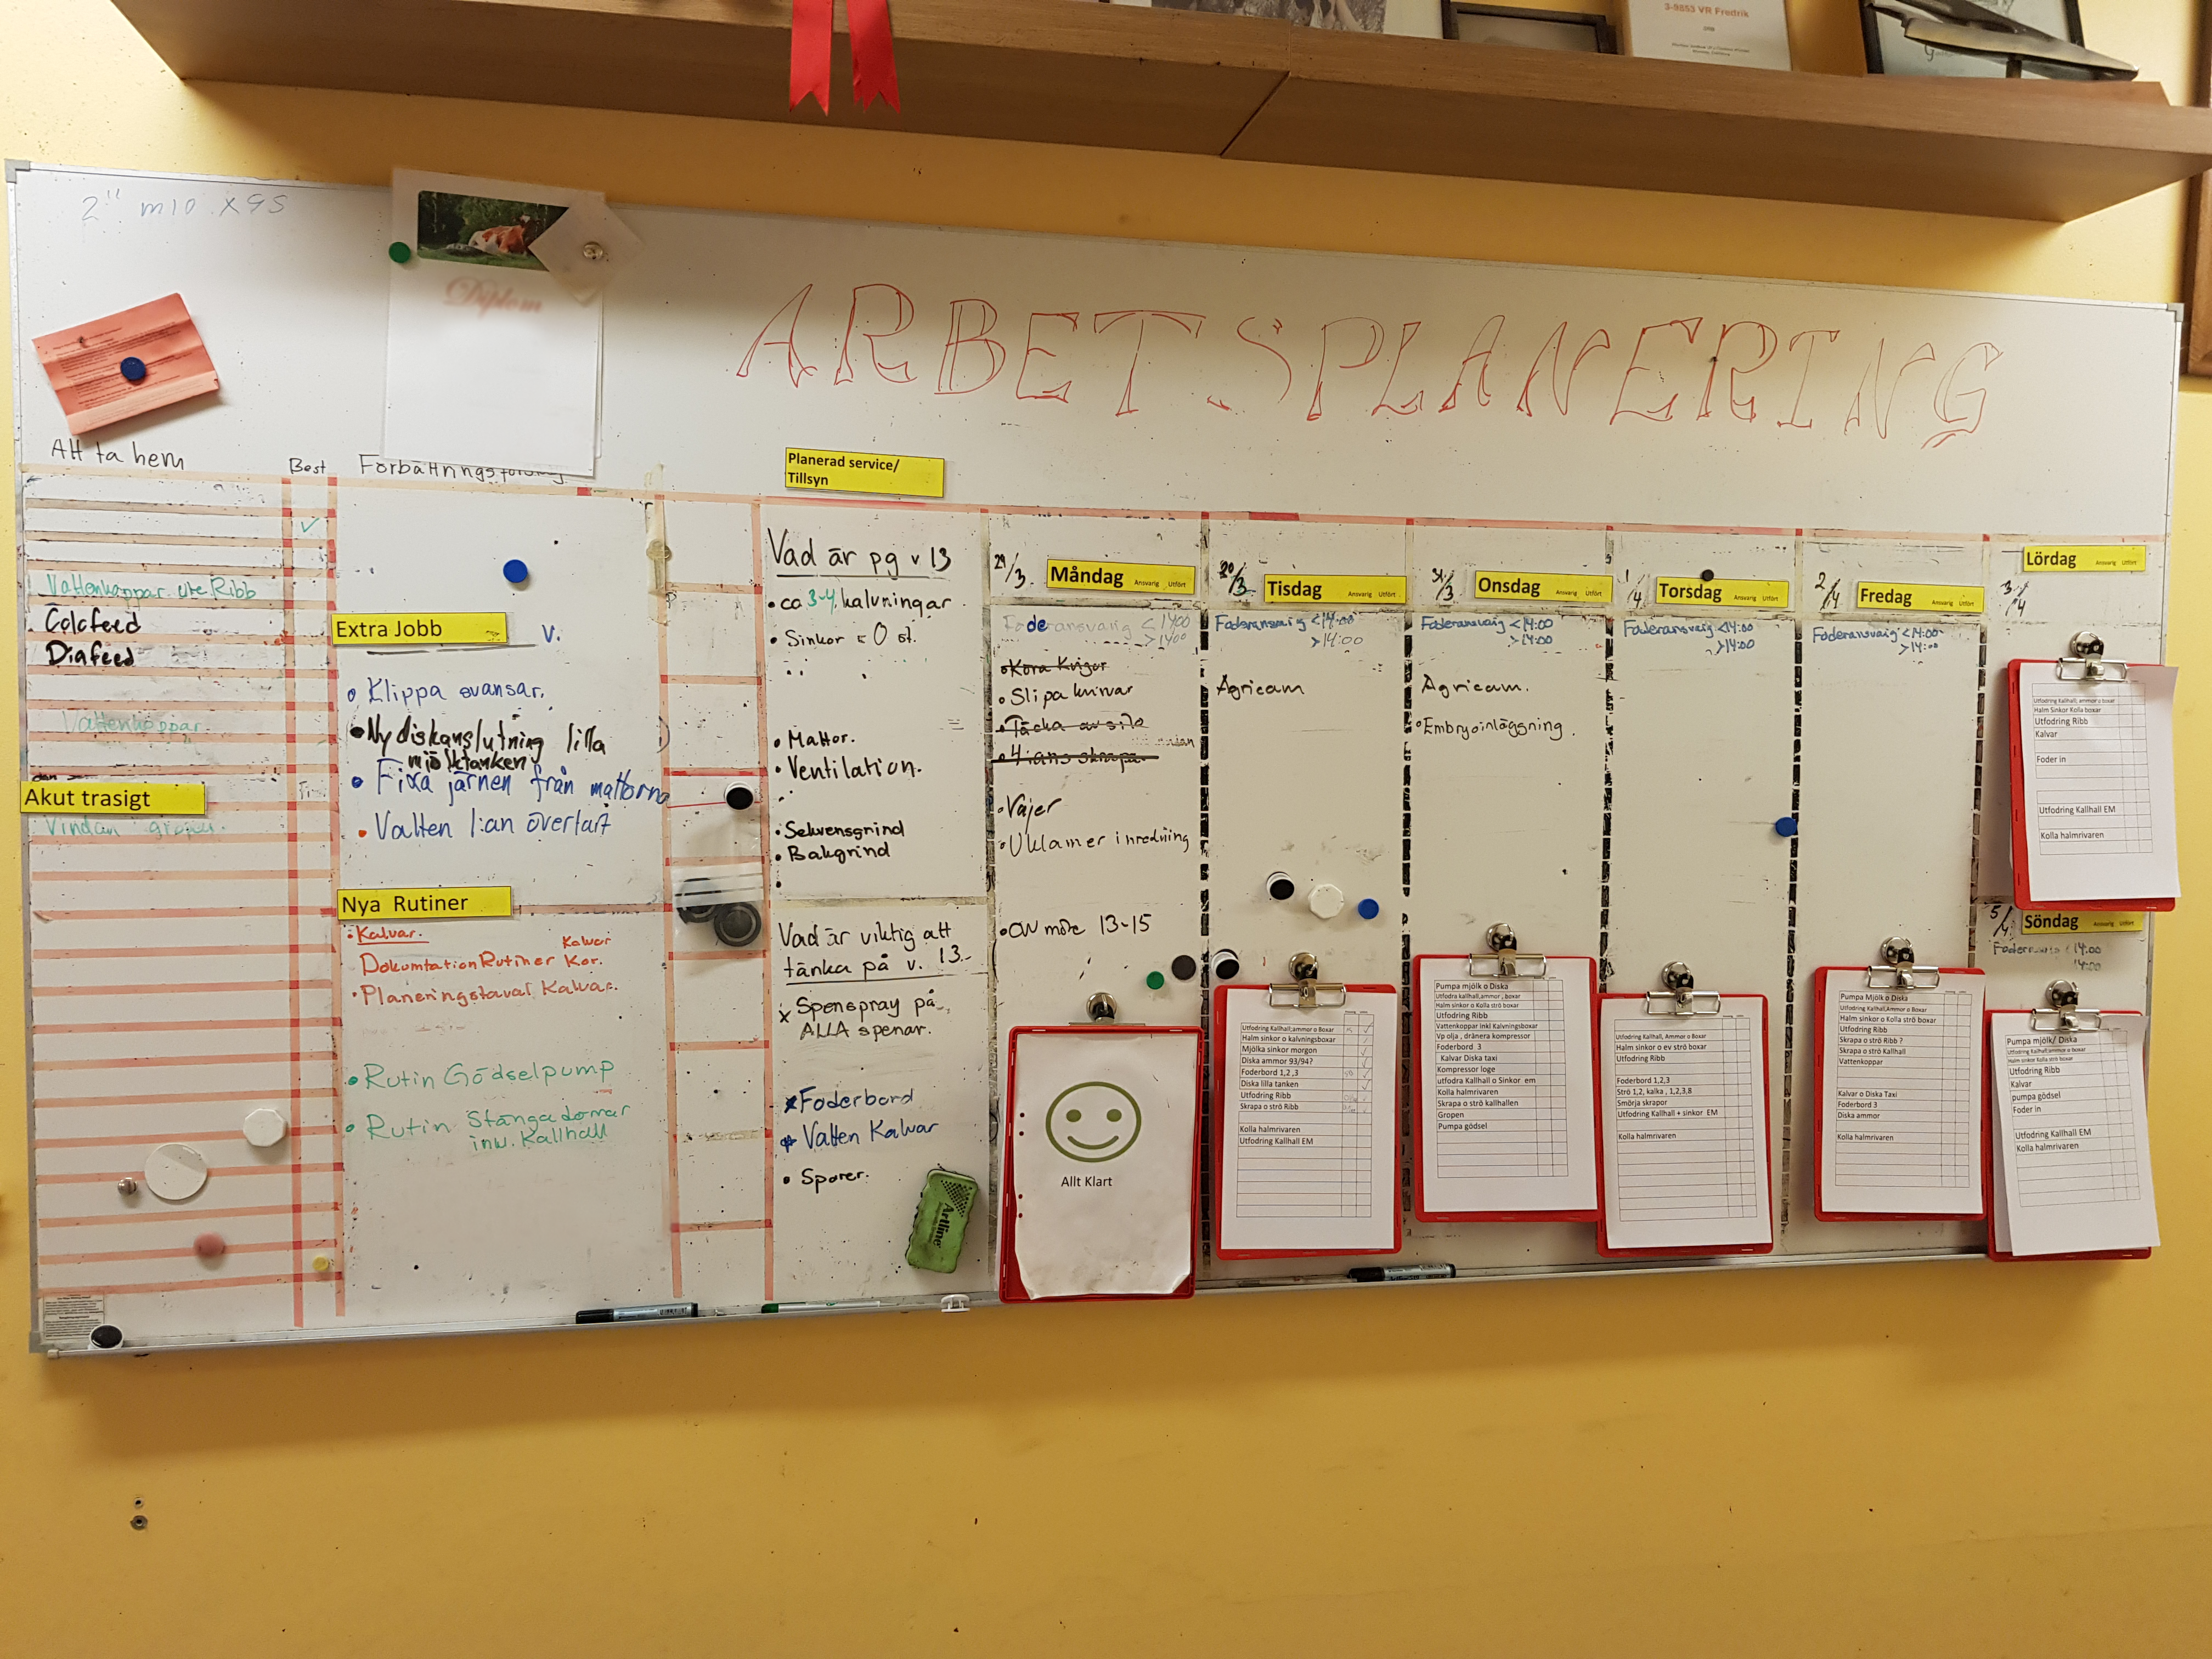 3-9853 VR Fredrik
2" m10 x 95
Diplom
ARBETSPLANERING
Att ta hem
Best
Vattenkoppar ute Ribb
Calcfeed
Diafeed
Vattenkoppar.
Akut trasigt
Vindan
Extra Jobb
v.
Klippa svansar.
Ny diskanslutning lilla
mjölktanken
Fixa järnen från mattorna
Vatten 1:an överlait
Nya Rutiner
• Kalvar.
Kalvar
Dokumtation Rutiner Kor.
• Planeringstaval Kalvar.
• Rutin Gödselpump
• Rutin Stänga dörrar
inkl. Kallhall
Planerad service/
Tillsyn
Vad är pg v 13
• ca 3-4 kalvningar
• Sinkor = 0 st.
• Mattor.
• Ventilation.
• Sekvensgrind
• Bakgrind
Vad är viktig att
tänka på v. 13
x Spenspray på
ALLA spenar.
x Foderbord
Vatten Kalvar
• Sporer.
Artline
29/3
Måndag Ansvarig Utfört
Foderansvarig < 1400
> 1400
• Köra Kvigor
• Slipa knivar
• Täcka av silo
• 4:ans skrapa
• Vajer
• Uklamer inredning
• OW möte 13-15
Allt Klart
30/3
Tisdag Ansvarig Utfört
Foderansvarig < 14:00
> 14:00
Agricam
Utfodring Kallhall;ammor o Boxar
Halm sinkor o kalvningsboxar
Mjölka sinkor morgon
Diska ammor 93/94?
Foderbord 1,2 ,3
Diska lilla tanken
Utfodring Ribb
Skrapa o strö Ribb
Kolla halmrivaren
Utfodring Kallhall EM
31/3
Onsdag Ansvarig Utfört
Foderansvarig < 14:00
> 14:00
Agricam.
• Embryoinläggning.
Pumpa mjölk o Diska
Utfodra kallhall,ammor , boxar
Halm sinkor o Kolla strö boxar
Utfodring Ribb
Vattenkoppar inkl Kalvningsboxar
Vp olja , dränera kompressor
Foderbord 3
Kalvar Diska taxi
Kompressor loge
utfodra Kallhall o Sinkor em
Kolla halmrivaren
Skrapa o strö kallhallen
Gropen
Pumpa gödsel
1/4
Torsdag Ansvarig Utfört
Foderansvarig < 14:00
> 14:00
Utfodring Kallhall, Ammor o Boxar
Halm sinkor o ev strö boxar
Utfodring Ribb
Foderbord 1,2,3
Strö 1,2, kalka , 1,2,3,8
Smörja skrapor
Utfodring Kallhall + sinkor EM
Kolla halmrivaren
2/4
Fredag Ansvarig Utfört
Foderansvarig < 14:00
> 14:00
Pumpa Mjölk o Diska
Utfodring Kallhall,Ammor o Boxar
Halm sinkor o Kolla strö boxar
Utfodring Ribb
Skrapa o strö Ribb ?
Skrapa o strö Kallhall
Vattenkoppar
Kalvar o Diska Taxi
Foderbord 3
Diska ammor
Kolla halmrivaren
Lördag Ansvarig Utfört
3/4
Utfodring Kallhall, ammor o boxar
Halm Sinkor Kolla boxar
Utfodring Ribb
Kalvar
Foder in
Utfodring Kallhall EM
Kolla halmrivaren
5/4
Söndag Ansvarig Utfört
< 14:00
14:00
Pumpa mjölk/ Diska
Utfodring Kallhall,ammor o boxar
Halm sinkor Kolla strö boxar
Utfodring Ribb
Kalvar
pumpa gödsel
Foder in
Utfodring Kallhall EM
Kolla halmrivaren